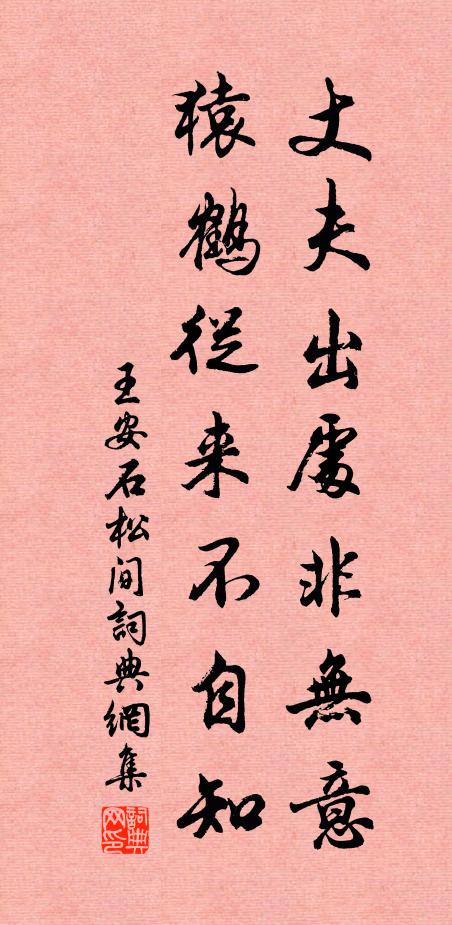 丈夫出處非無意
猿鶴從来不自知
王安石松間詞典網集
詞典网印